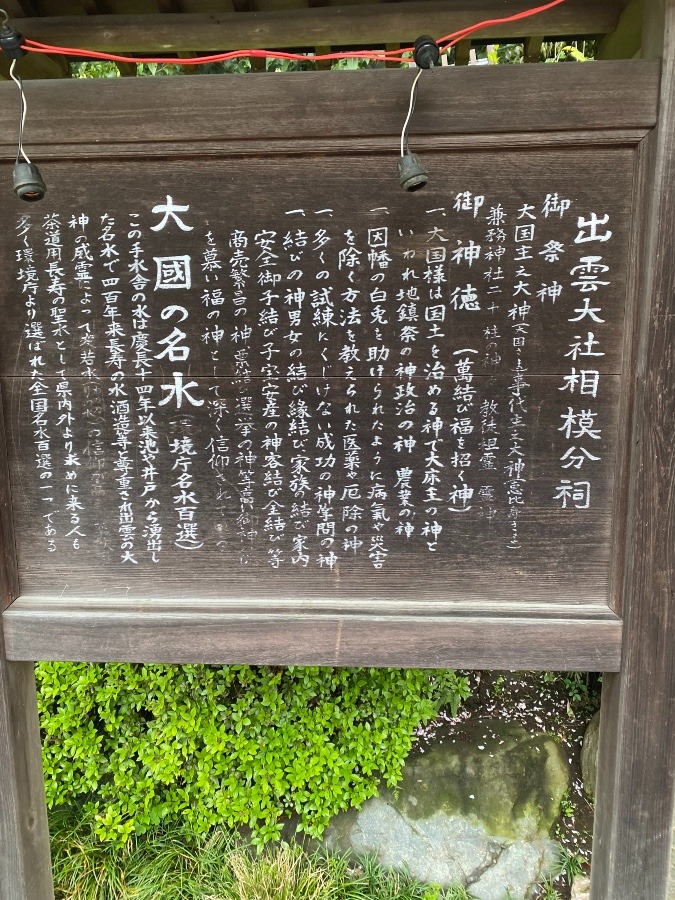 出雲大社相模分祠
御祭神
大国主之大神(大国さま)事代主之大神(恵比寿さま)
兼務神社二十柱の神 教徒祖霊 霊神
御神徳 (萬結び福を招く神)
一、大国様は国土を治める神で大床主の神と
いわれ地鎮祭の神政治の神 農業の神
一、因幡の白兎を助けられたように病氣や災害
を除く方法を教えられた医薬や厄除の神
一、多くの試練にくじけない成功の神学問の神
一、結びの神男女の結び縁結び家族の結び家内
安全御子結び子宝安産の神客結び金結び等
商売繁昌の神 票結び選挙の神等高い御神徳
を慕い福の神として深く信仰されている
大國の名水(環境庁名水百選)
この手水舎の水は慶長十四年以来池や井戸から湧出し
た名水で四百年来長寿の水酒造等と尊重され出雲の大
神の威霊によって若水の信仰
茶道用長寿の聖水として県内外より求めに来る人も
多く環境庁より選ばれた全国名水百選の一つである